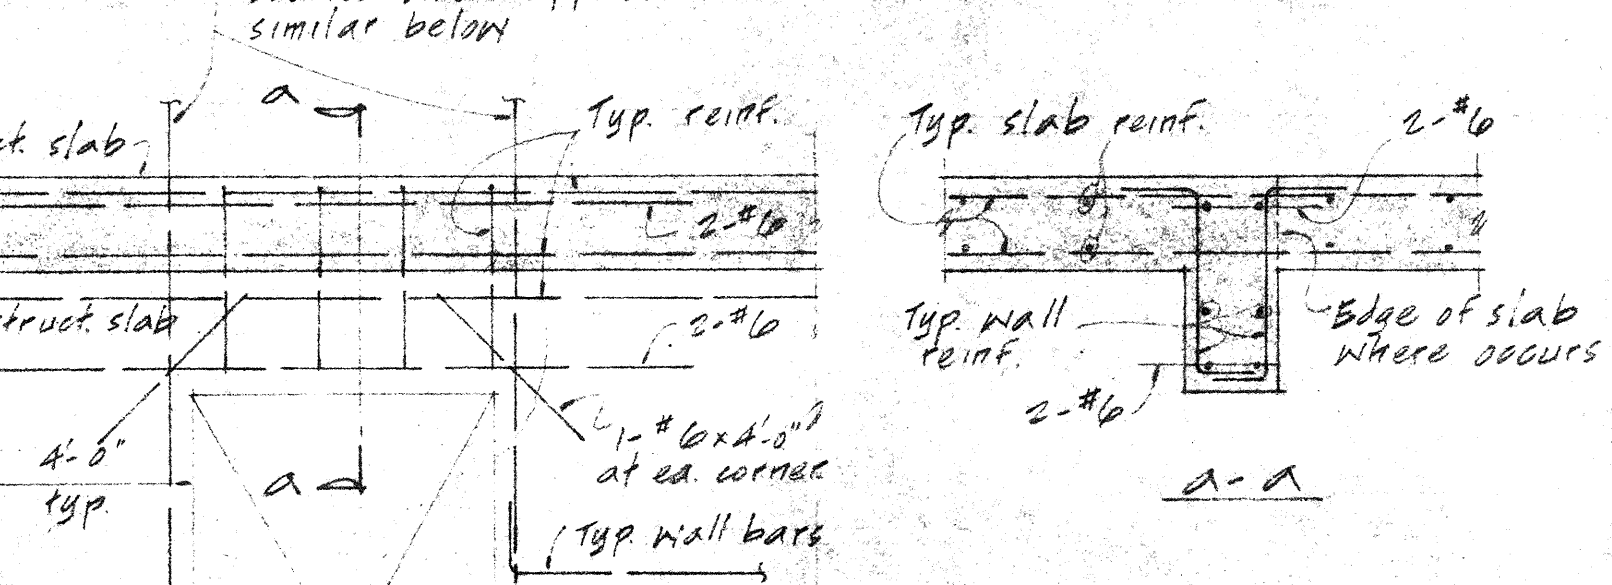 similar below
a
Typ. reinf.
ct. slab
2-#6
truct. slab
2-#6
4'-0"
typ.
1-#6x4'-0"
at ea. corner
a
Typ. wall bars
Typ. slab reinf.
2-#6
Typ. wall
reinf.
Edge of slab
where occurs
2-#6
a-a